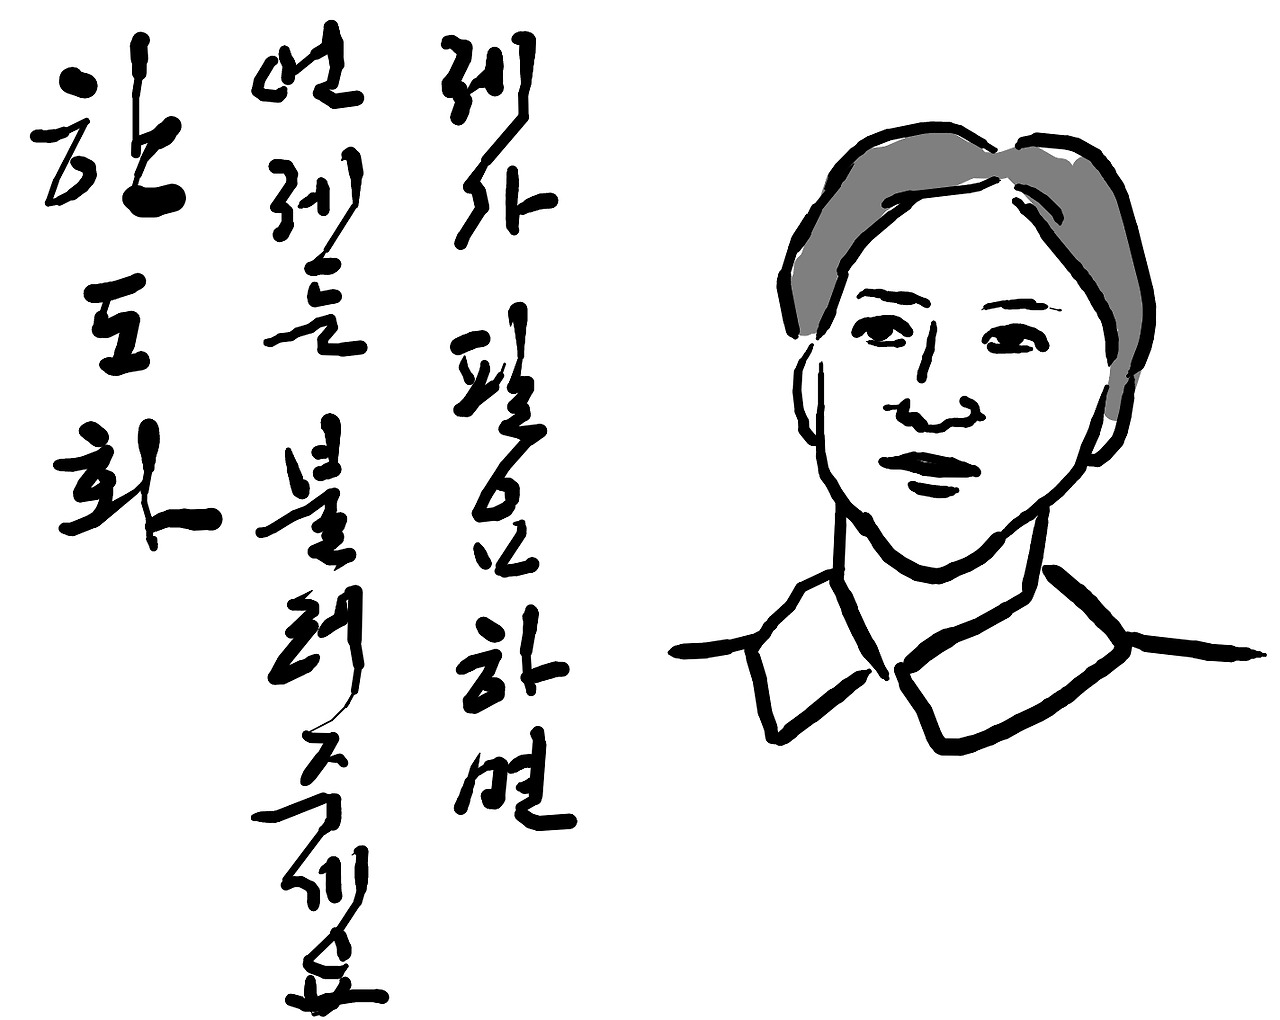 제가 필요하면
언제든 불러주세요
한도화